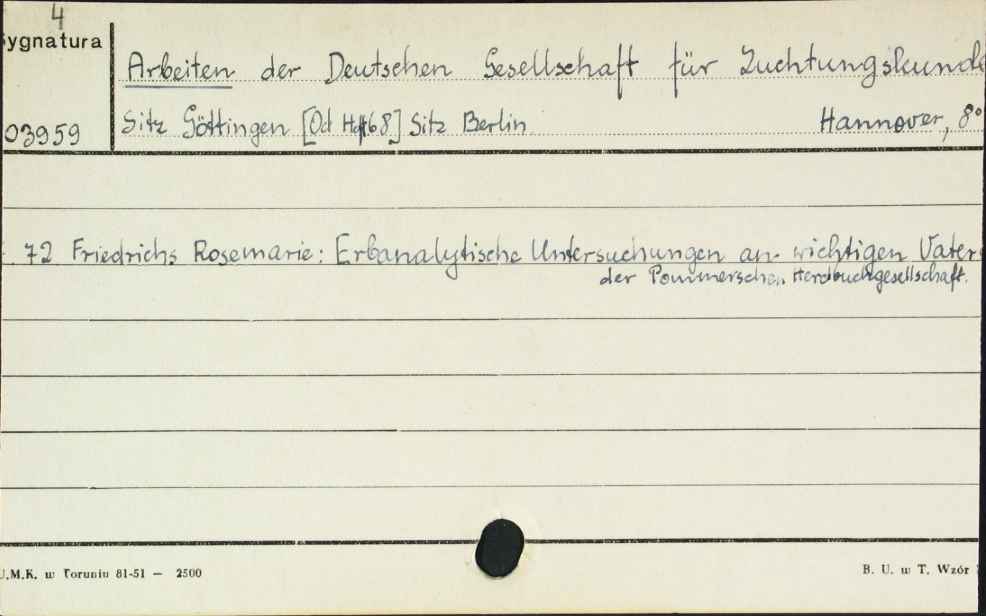 4
ygnatura
Arbeiten der Deutschen Gesellschaft für Züchtungskunde
03959
Sitz Göttingen [Od Heft 68] Sitz Berlin Hannover, 8°
72 Friedrichs Rosemarie: Erbanalytische Untersuchungen an wichtigen Vater
der Pommerschen Herdbuchgesellschaft.
U.M.K. w Toruniu 81-51 — 2500
B. U. w T. Wzór